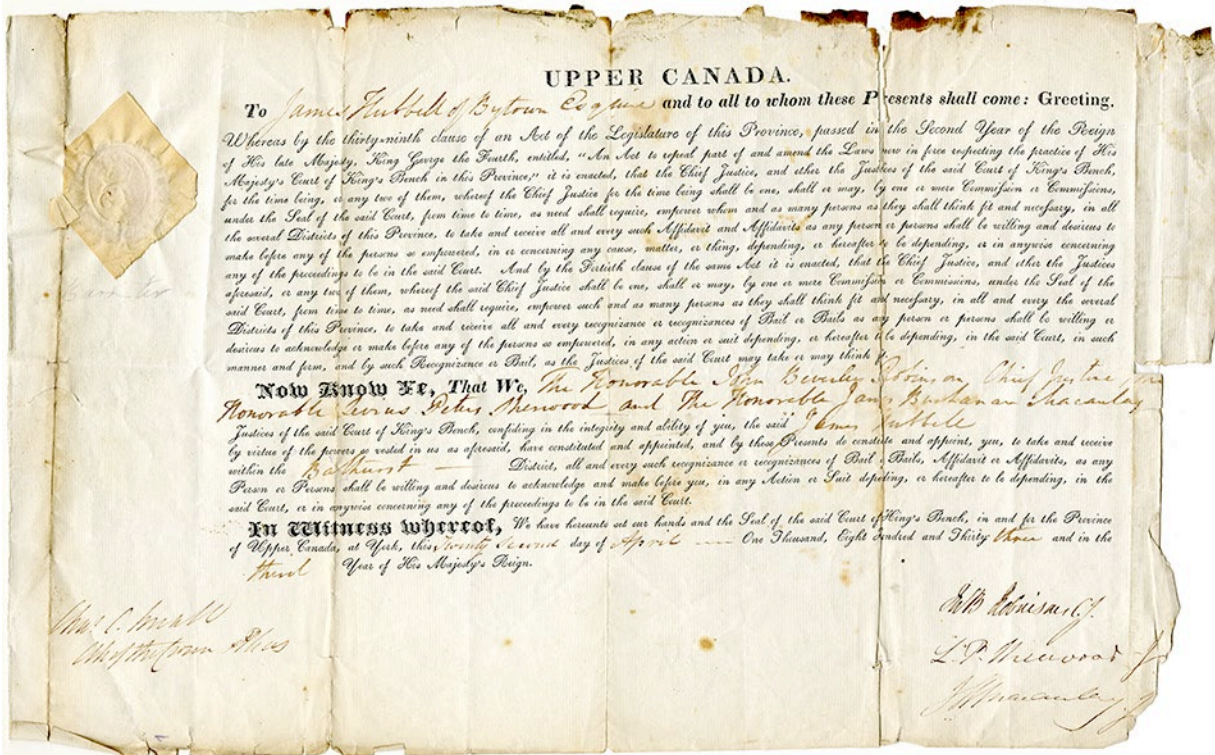 UPPER CANADA.
To James Hubbell of Bytown Esquire and to all to whom these Presents shall come: Greeting.
Whereas by the thirty-ninth clause of an Act of the Legislature of this Province, passed in the Second Year of the Reign
of His late Majesty, King George the Fourth, entitled, "An Act to repeal part of and amend the Laws now in force respecting the practice of His
Majesty's Court of King's Bench in this Province," it is enacted, that the Chief Justice, and other the Justices of the said Court of King's Bench,
for the time being, or any two of them, whereof the Chief Justice for the time being shall be one, shall or may, by one or more Commission or Commissions,
under the Seal of the said Court, from time to time, as need shall require, empower whom and as many persons as they shall think fit and necessary, in all
the several Districts of this Province, to take and receive all and every such Affidavit and Affidavits as any person or persons shall be willing and desirous to
make before any of the persons so empowered, in or concerning any cause, matter, or thing, depending, or hereafter to be depending, or in anywise concerning
any of the proceedings to be in the said Court. And by the Fortieth clause of the same Act it is enacted, that the Chief Justice, and other the Justices
aforesaid, or any two of them, whereof the said Chief Justice shall be one, shall or may, by one or more Commission or Commissions, under the Seal of the
said Court, from time to time, as need shall require, empower such and as many persons as they shall think fit and necessary, in all and every the several
Districts of this Province, to take and receive all and every recognizance or recognizances of Bail or Bails as any person or persons shall be willing or
desirous to acknowledge or make before any of the persons so empowered, in any action or suit depending, or hereafter to be depending, in the said Court, in such
manner and form, and by such Recognizance or Bail, as the Justices of the said Court may take or may think
Now Know Ye, That We, The Honorable John Beverley Robinson, Chief Justice
Honorable Levius Peters Sherwood and The Honorable James Buchanan Macaulay
Justices of the said Court of King's Bench, confiding in the integrity and ability of you, the said James Hubbell
by virtue of the powers so vested in us as aforesaid, have constituted and appointed, and by these Presents do constitute and appoint, you, to take and receive
within the Bathurst — District, all and every such recognizance or recognizances of Bail Bails, Affidavit or Affidavits, as any
Person or Persons shall be willing and desirous to acknowledge and make before you, in any Action or Suit depending, or hereafter to be depending, in the
said Court, or in anywise concerning any of the proceedings to be in the said Court.
In Witness whereof, We have hereunto set our hands and the Seal of the said Court of King's Bench, in and for the Province
of Upper Canada, at York, this twenty second day of April — One Thousand, Eight Hundred and Thirty three and in the
third Year of His Majesty's Reign.
Chas C. Small
Clk of the Crown &
Jno B Robinson C.J.
L. P. Sherwood J
J B Macaulay J